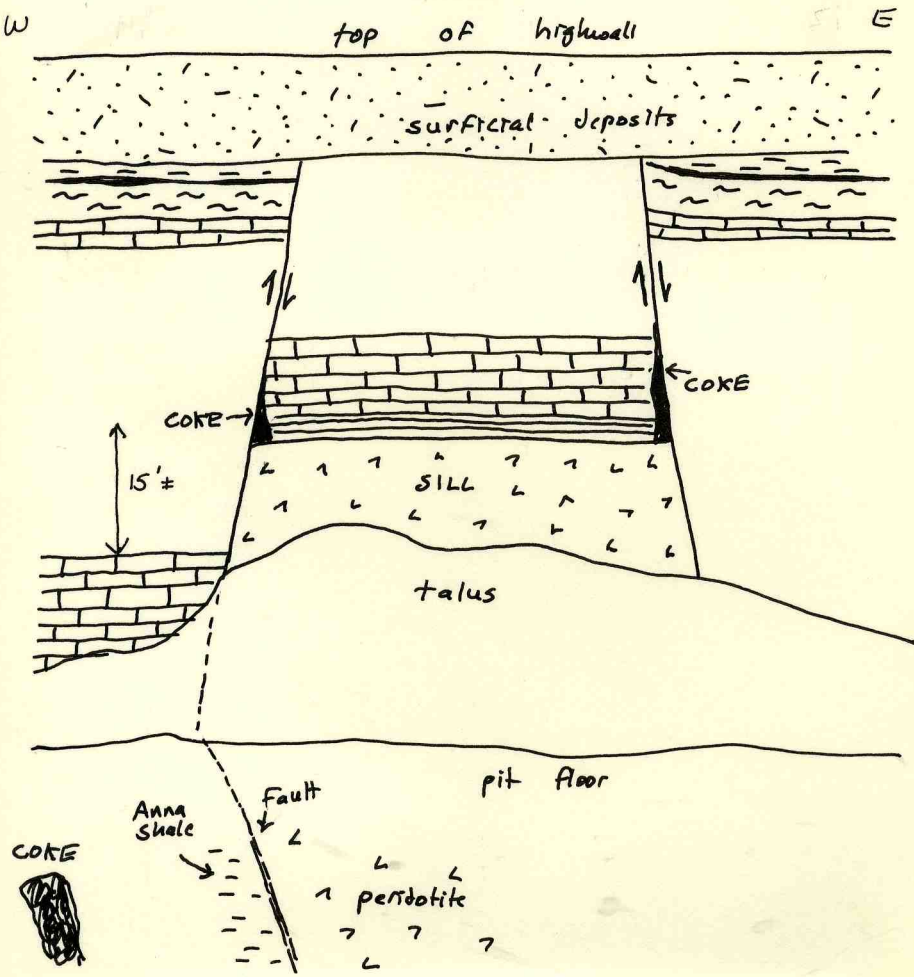 W
E
top of highwall
surficial deposits
COKE
COKE
15'±
SILL
talus
pit floor
Anna
Shale
Fault
COKE
peridotite